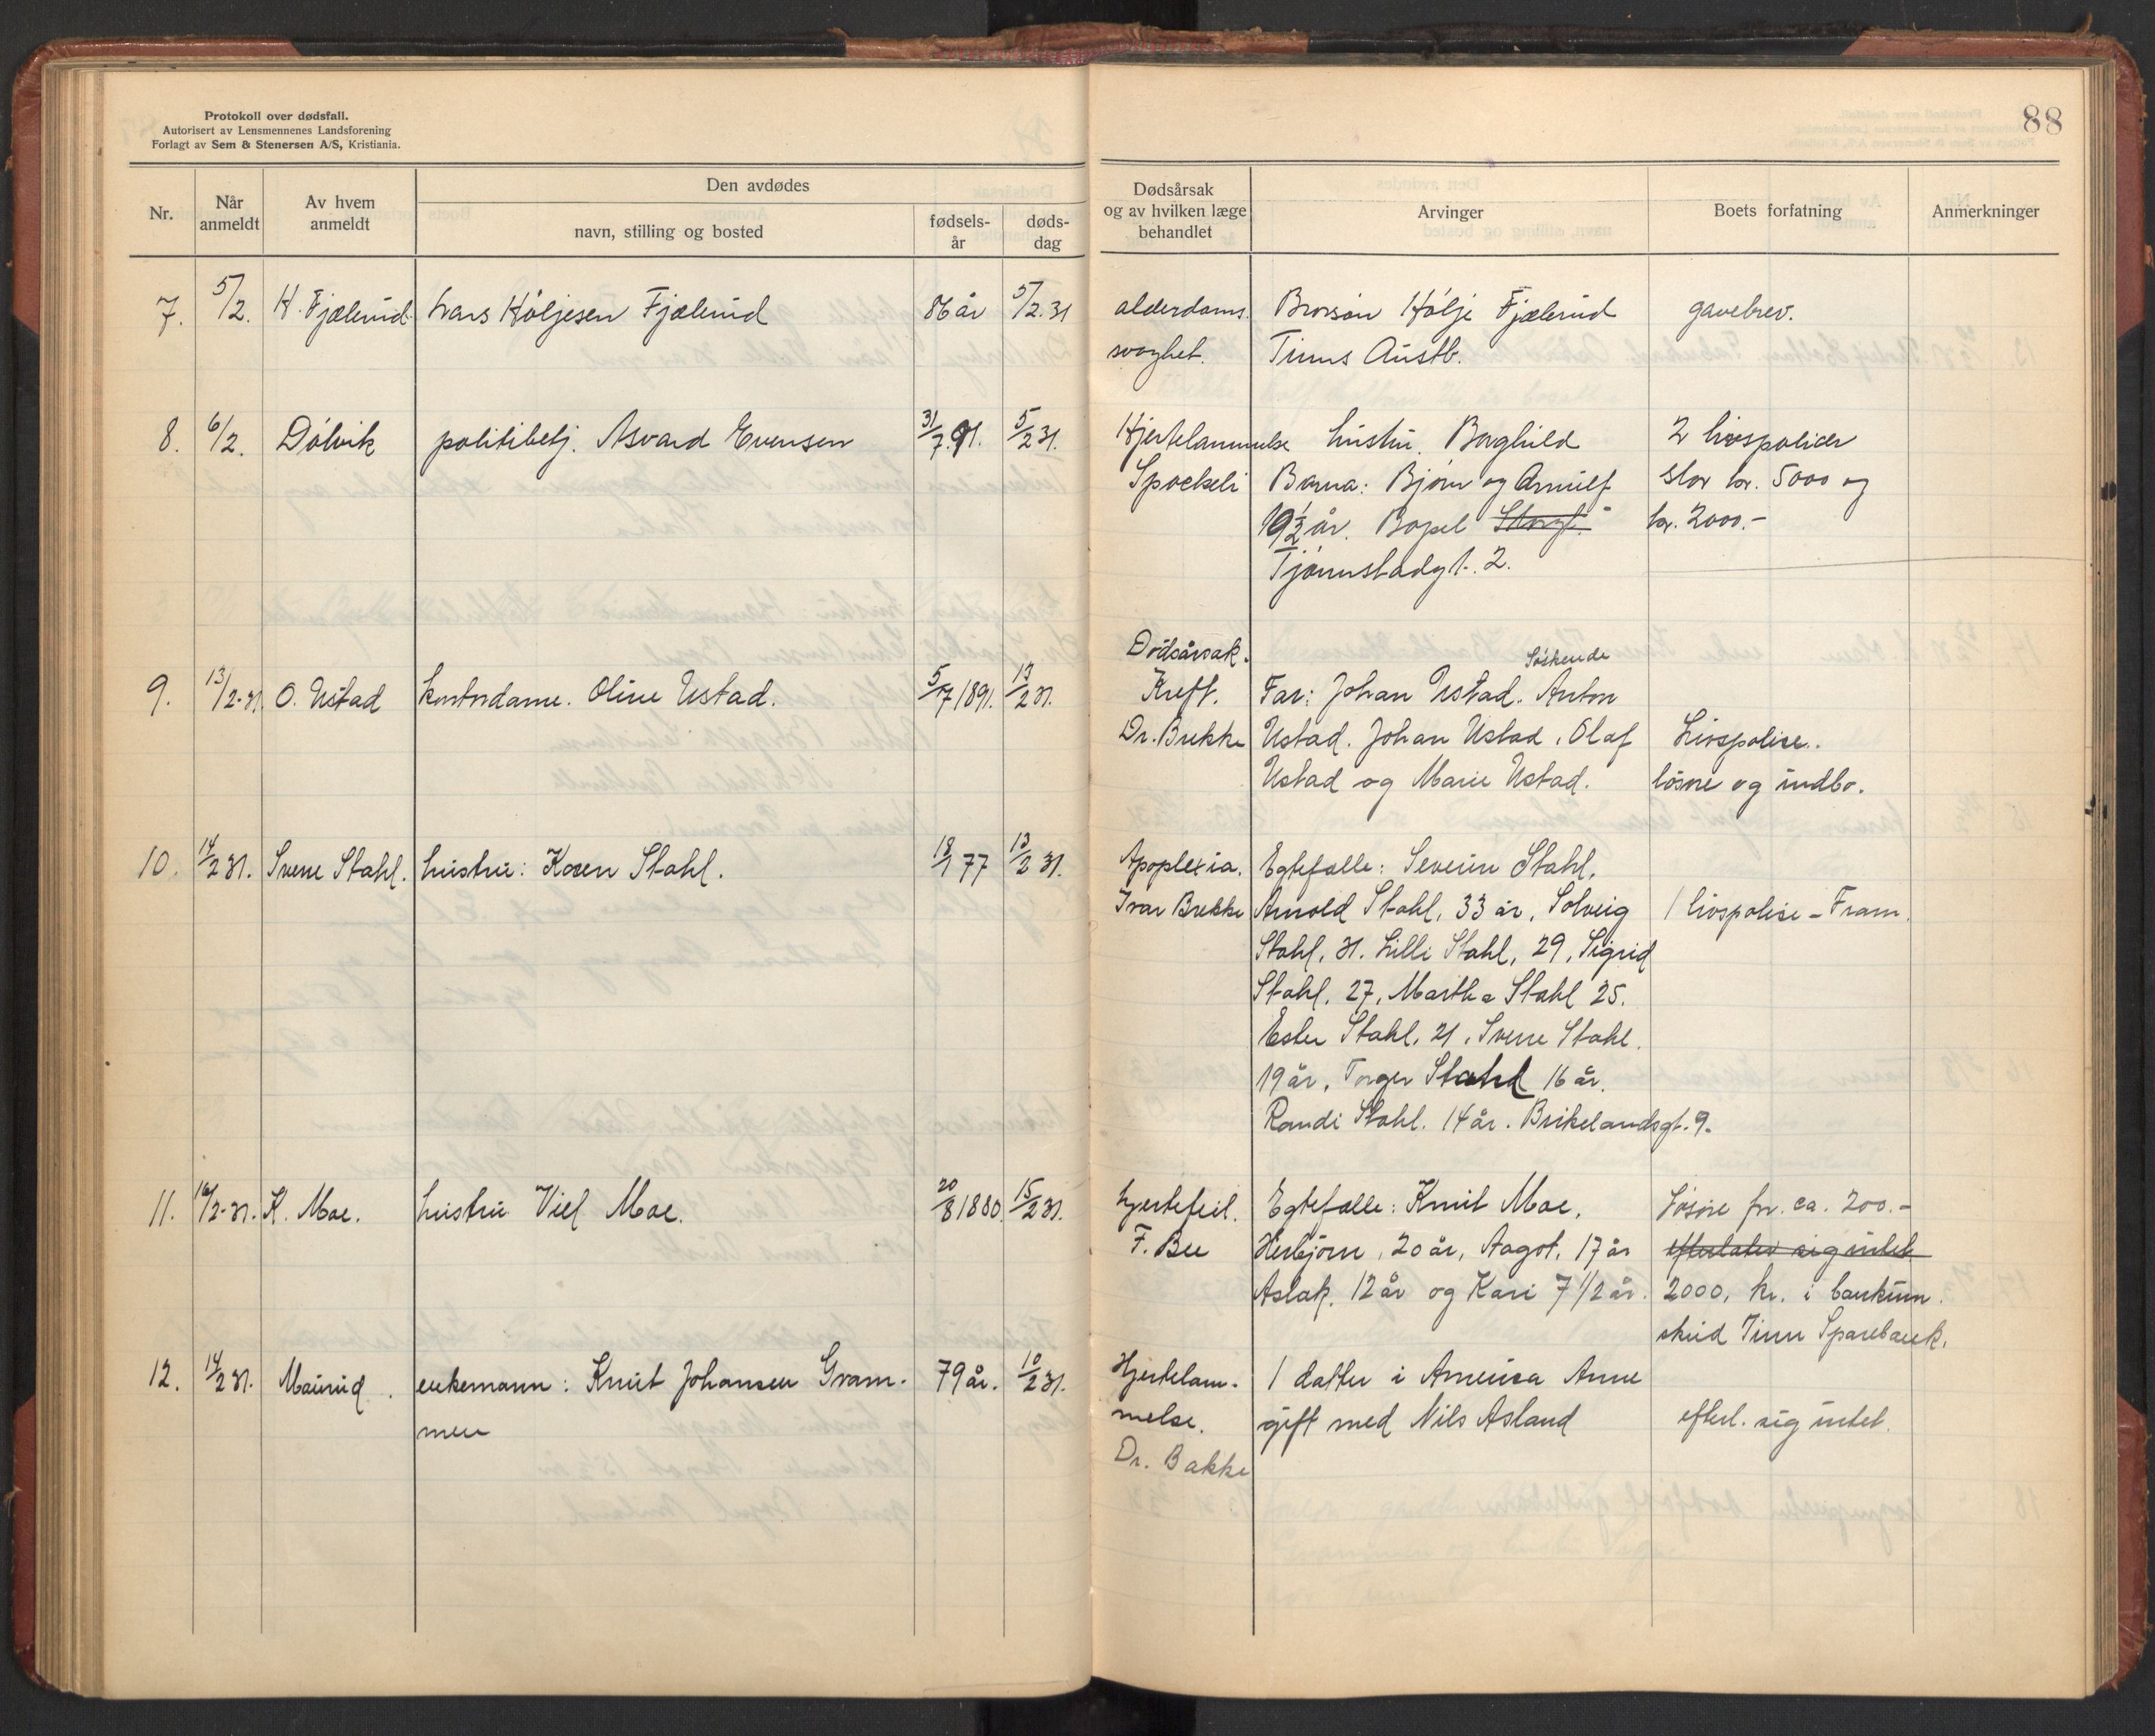 Protokoll over dødsfall.
Autorisert av Lensmennenes Landsforening
Forlagt av Sem & Stenersen A/S, Kristiania.
88
Nr.
Når anmeldt
Av hvem anmeldt
Den avdødes
navn, stilling og bosted
fødsels-år
døds-dag
Dødsårsak
og av hvilken læge
behandlet
Arvinger
Boets forfatning
Anmerkninger
7. 5/2. H. Fjælerud. Lars Høljesen Fjælerud 86 år 5/2.31 alderdoms. Brorsøn Hølje Fjælerud gavebrev.
svaghet. Tinns Austb.
8. 6/2. Dølvik politibetj. Asvard Evensen 31/7.91. 5/2 31. Hjertelammelse hustru. Borghild 2 livspolicer
Spockeli Barna: Bjørn og Arnulf stor kr. 5000 og
19 1/2 år. Bopel kr. 2000.-
Tjønnstadgt. 2.
Dødsårsak. Søskende
9. 13/2-31. O. Ustad kontordame. Oline Ustad. 5/7 1891. 13/2 31. Kreft. Far: Johan Ustad. Anton
Dr. Brekke Ustad. Johan Ustad, Olaf Livspolise.
Ustad og Marie Ustad. løsøre og indbo.
10. 14/2 31. Sverre Stahl. hustru: Karen Stahl. 18/1 77 13/2 31. Apoplexia. Egtefælle: Severin Stahl,
Ivar Brekke Arnold Stahl, 33 år, Solveig 1 livspolise - Fram.
Stahl, 31. Lilli Stahl, 29, Sigrid
Stahl, 27, Martha Stahl 25.
Ester Stahl, 21, Sverre Stahl.
19 år, Torger Stahl 16 år.
Randi Stahl. 14 år. Birkelandsgt. 9.
11. 16/2-31. K. Moe. hustru Viel Moe. 20/8 1880 15/2 31. hjertefeil. Egtefælle: Knut Moe, Løsøre for ca. 200.-
F. Bee Herbjørn, 20 år, Aagot, 17 år efterlater sig intet
Aslak, 12 år og Kari 7 1/2 år. 2000, kr. i bankinn.
skud Tinn Sparebank.
12. 14/2 31. Maurud. enkemann: Knut Johansen Gram- 79 år. 10/2 31. Hjertelam- 1 datter i America Anne
men melse. gift med Nils Asland efterl. sig intet.
Dr. Bakke